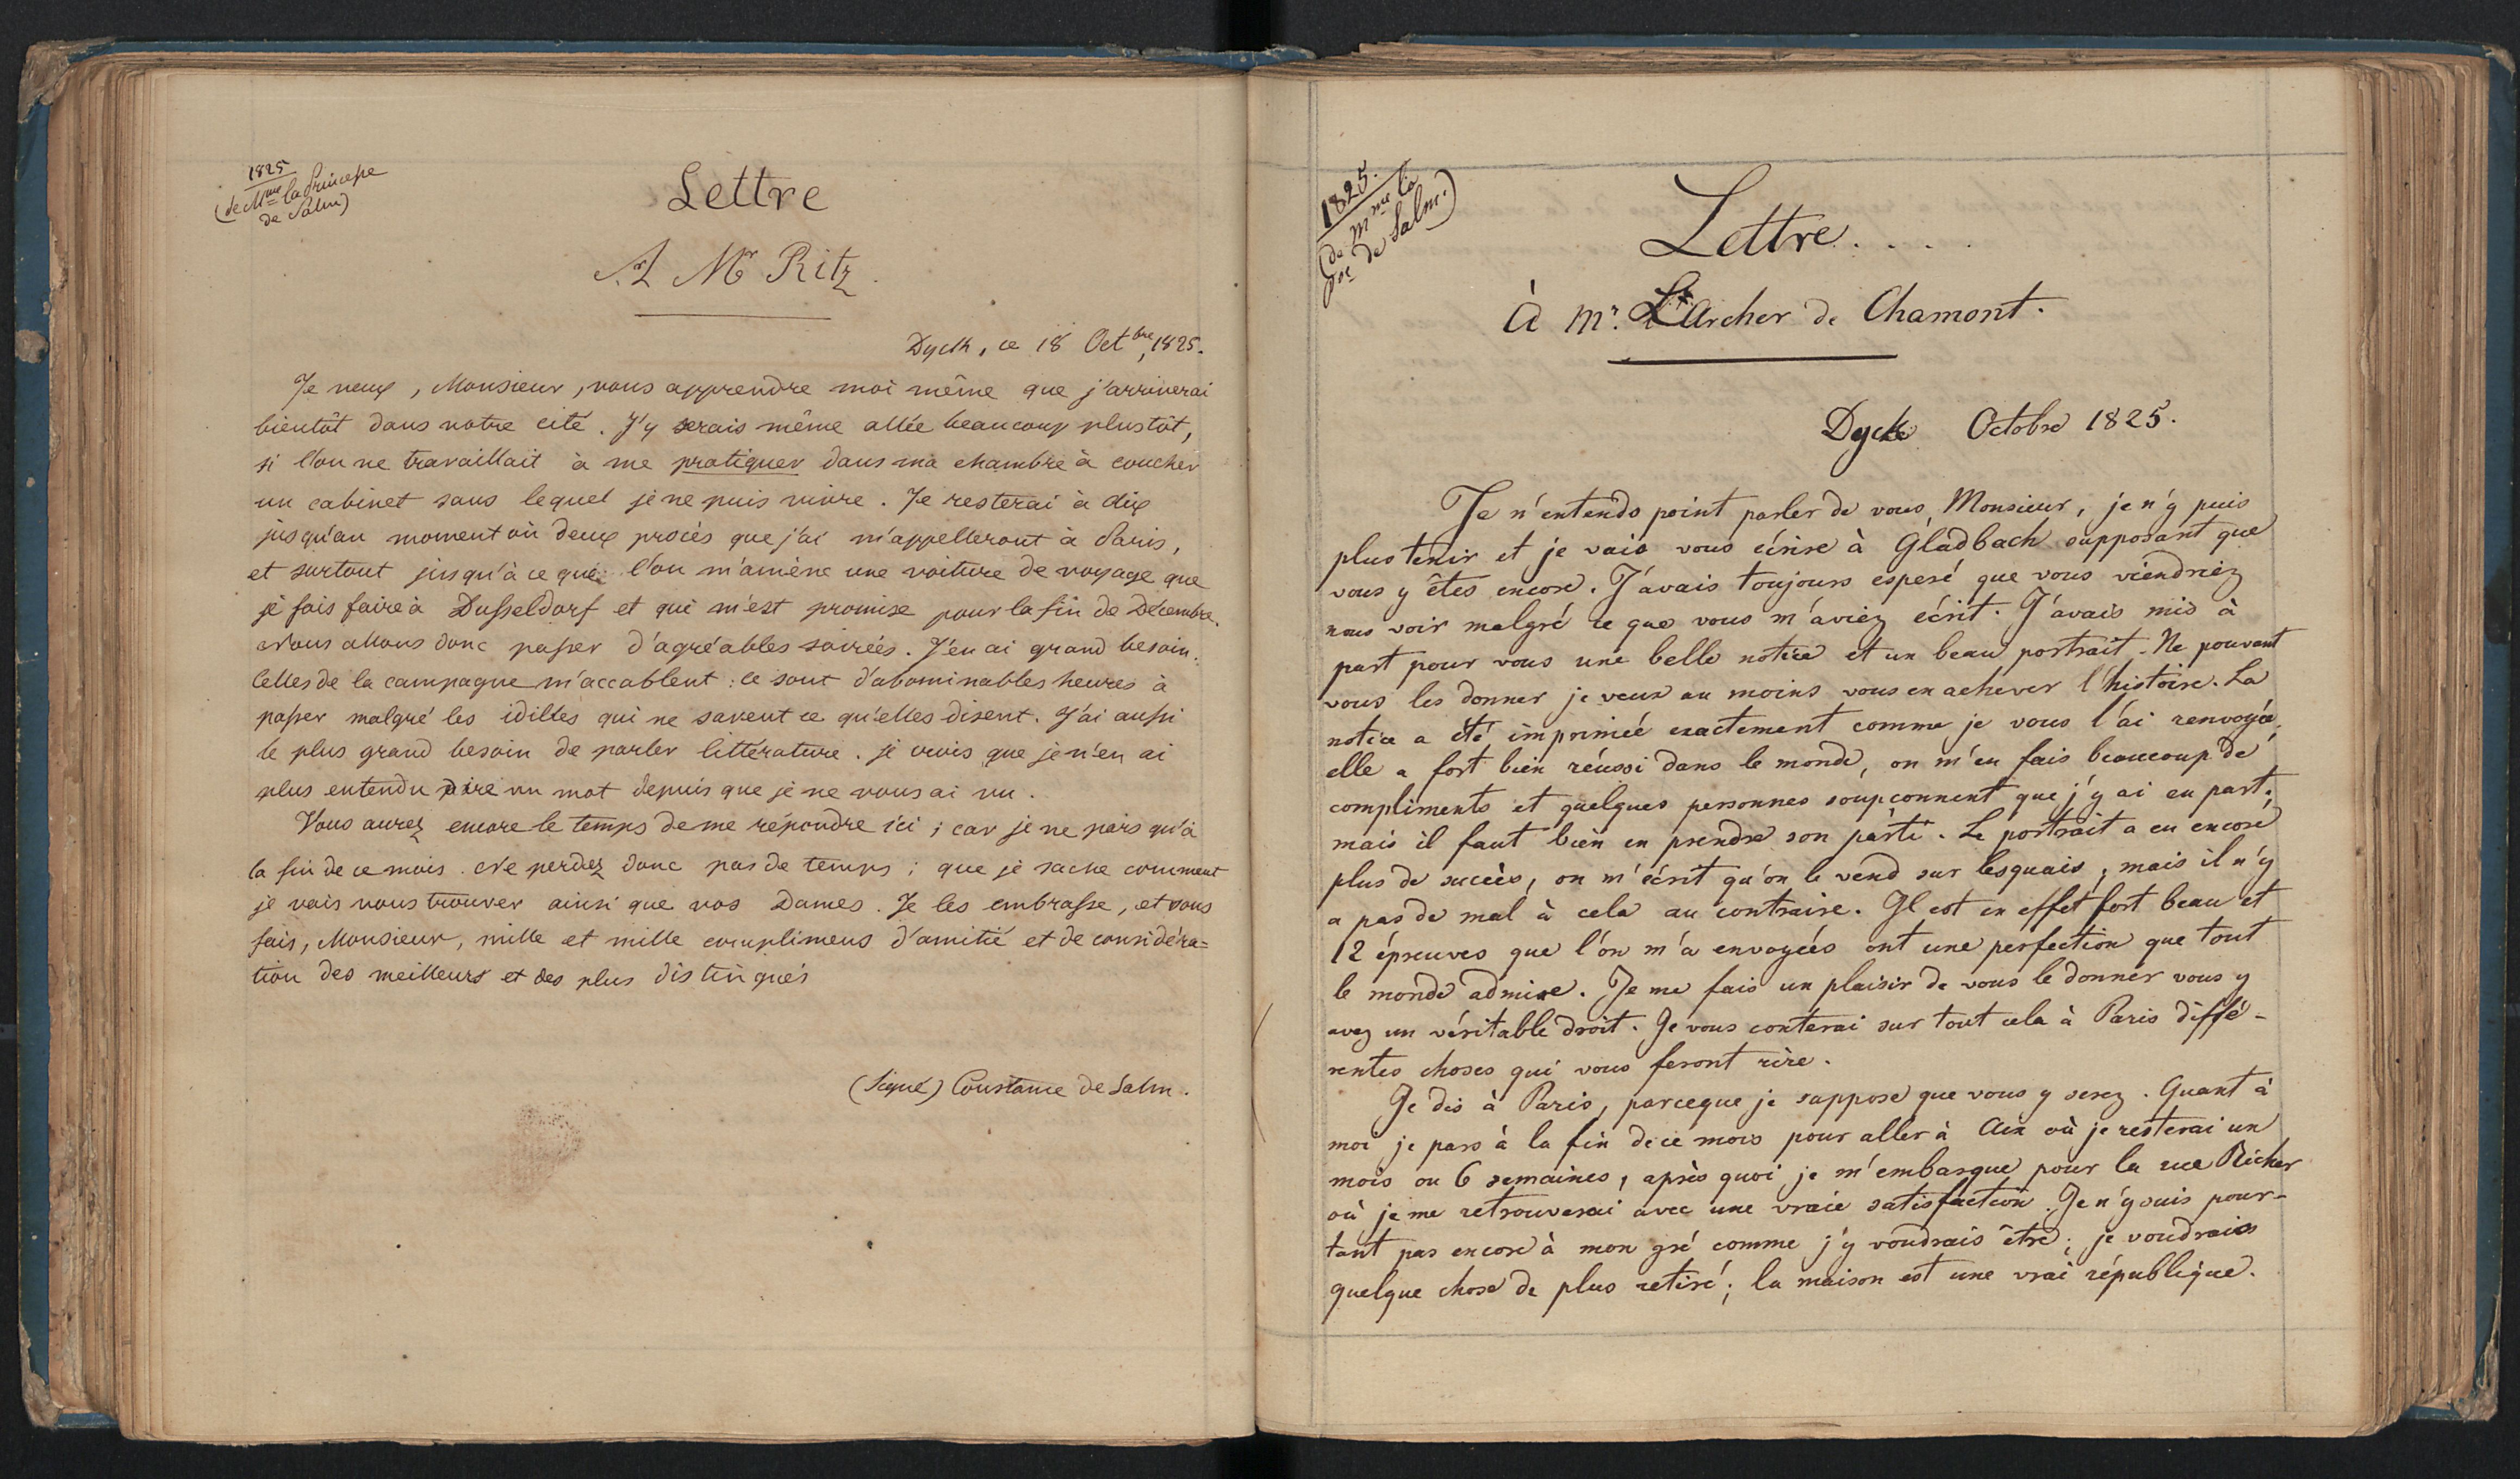 1825
(de Mme la Princesse
de Salm)
Lettre
A Mr Ritz.
Dyck, ce 18 Octbre, 1825.
Je veux, Monsieur, vous apprendre moi même que j'arriverai
bientôt dans votre cité. J'y serais même allée beaucoup plustôt,
si l'on ne travaillait à me pratiquer dans ma chambre à coucher
un cabinet sans lequel je ne puis vivre. Je resterai à Aix
jusqu'au moment où deux procès que j'ai m'appelleront à Paris,
et surtout jusqu'à ce que l'on m'amène une voiture de voyage que
je fais faire à Dusseldorf et qui m'est promise pour la fin de Décembre.
Nous allons donc passer d'agréables soirées. J'en ai grand besoin.
Celles de la campagne m'accablent: ce sont d'abominables heures à
passer malgré les idilles qui ne savent ce qu'elles disent. J'ai aussi
le plus grand besoin de parler littérature. je crois que je n'en ai
plus entendu dire un mot depuis que je ne vous ai vu.
Vous aurez encore le temps de me répondre ici; car je ne pars qu'à
la fin de ce mois. Ne perdez donc pas de temps; que je sache comment
je vais vous trouver ainsi que vos Dames. Je les embrasse, et vous
fais, Monsieur, mille et mille complimens d'amitié et de considéra=
tion des meilleurs et des plus distingués
(Signé) Constance de Salm.
1825.
(de Mme la
Pce de Salm.)
Lettre....
À Mr. L'Archer de Chamont.
Dyck Octobre 1825.
Je n'entends point parler de vous, Monsieur, je n'y puis
plus tenir et je vais vous écrire à Gladbach supposant que
vous y êtes encore. J'avais toujours esperé que vous viendriez
nous voir malgré ce que vous m'aviez écrit. J'avais mis à
part pour vous une belle notice et un beau portrait. Ne pouvant
vous les donner je veux au moins vous en achever l'histoire. La
notice a été imprimée exactement comme je vous l'ai renvoyée,
elle a fort bien réussi dans le monde, on m'en fais beaucoup de
compliments et quelques personnes soupçonnent que j'y ai eu part;
mais il faut bien en prendre son parti. Le portrait a eu encore
plus de succès, on m'écrit qu'on le vend sur les quais, mais il n'y
a pas de mal à cela au contraire. Il est en effet fort beau et
12 épreuves que l'on m'a envoyées ont une perfection que tout
le monde admire. Je me fais un plaisir de vous le donner vous y
avez un véritable droit. Je vous conterai sur tout cela à Paris diffé-
rentes choses qui vous feront rire.
Je dis à Paris, parceque je suppose que vous y serez. Quant à
moi je pars à la fin de ce mois pour aller à Aix où je resterai un
mois ou 6 semaines, après quoi je m'embarque pour la rue Richer
où je me retrouverai avec une vraie satisfaction. Je n'y suis pour-
tant pas encore à mon gré comme j'y voudrais être; je voudrais
quelque chose de plus retiré; la maison est une vrai république.